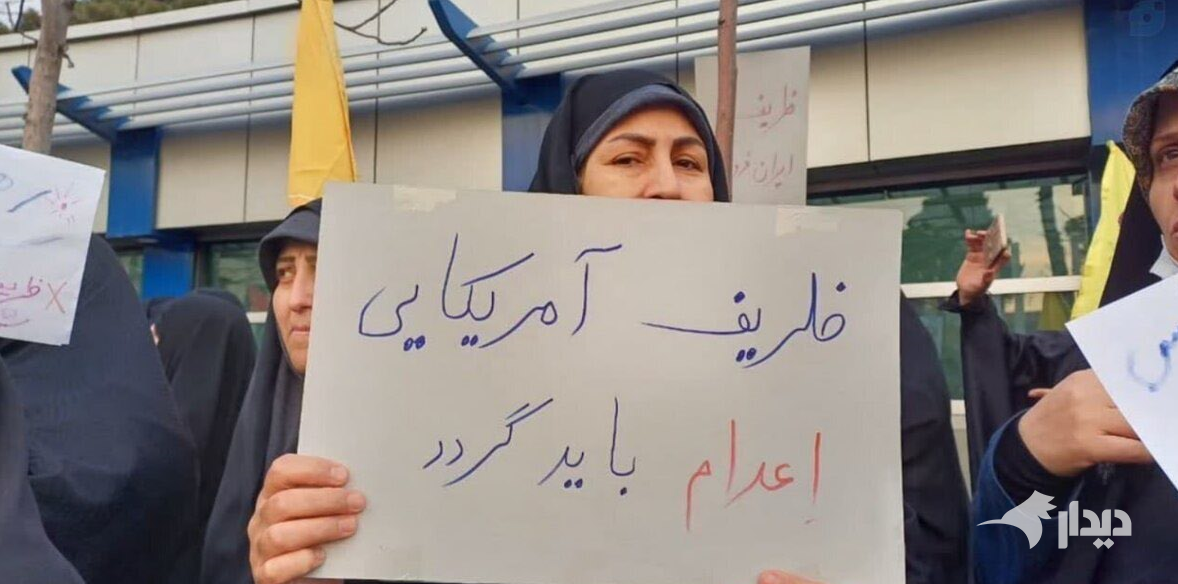 ظریف آمریکایی
اعدام باید گردد
ظریف
ایران
دیدار